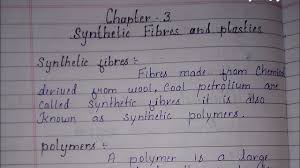 Chapter - 3
Synthetic Fibres and plastics
Synthetic fibres :-
Fibres made from Chemical
derived from wool, Coal petrolium are
called Synthetic fibres it is also
Known as synthetic polymers.
polymers :-
A polymer is a large